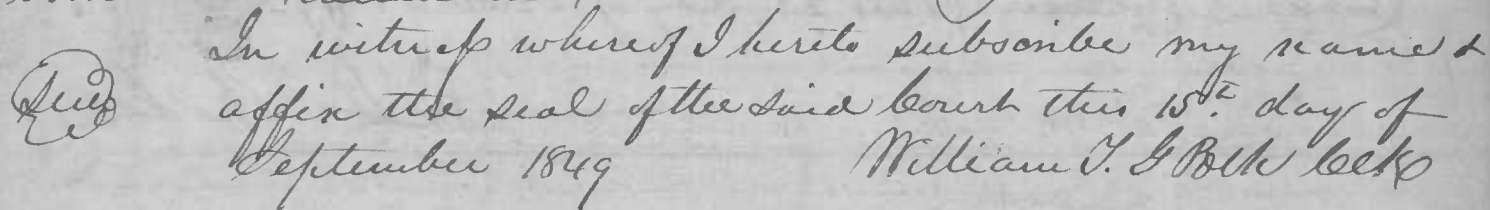 In witness whereof I hereto subscribe my name &
Seal affix the seal of the said Court this 15th day of
September 1849 William T. G Polk Clk